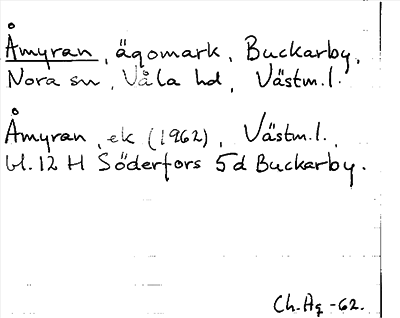 Åmyran, ägomark, Buckarby,
Nora sn, Våla hd, Västm.l.
Åmyran, ek (1962), Västm.l.,
bl. 12 H Söderfors 5d Buckarby.
Ch.Ag -62.